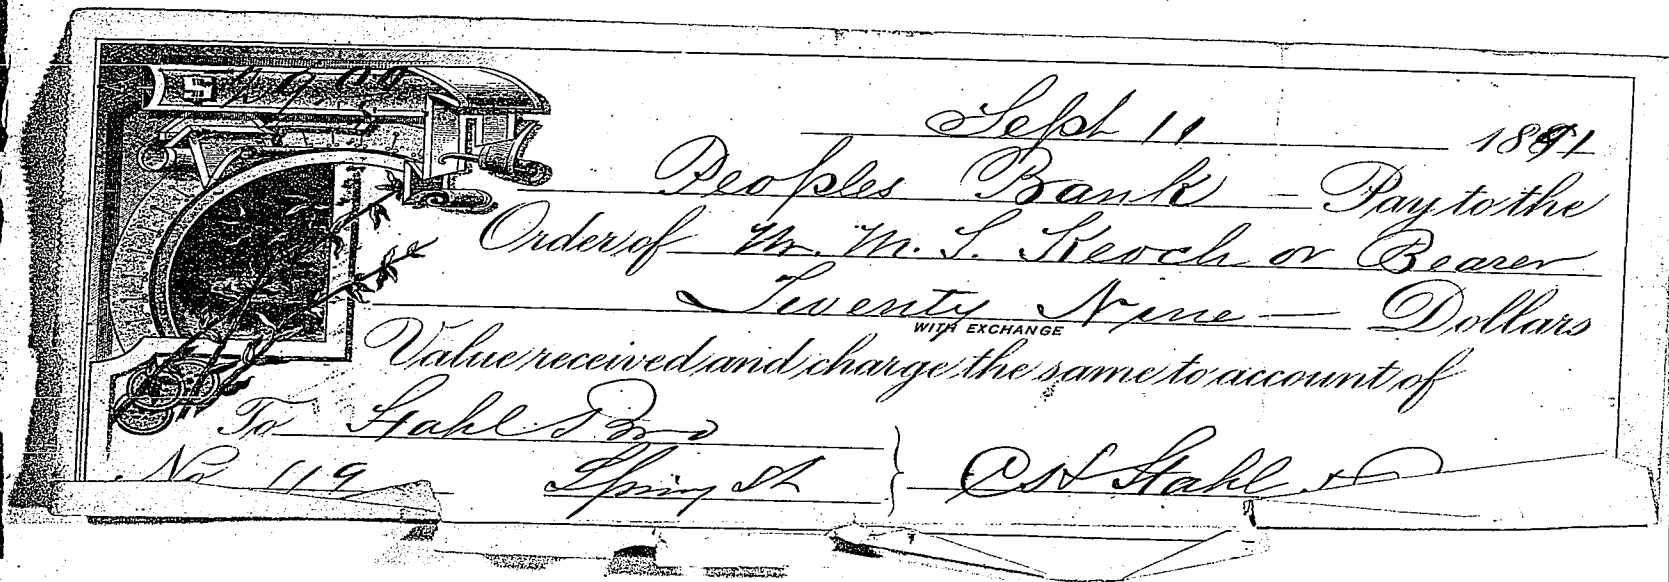 Sept 11 1891
Peoples Bank - Pay to the
Order of Mr. M. S. Keoch or Bearer
Nine — Dollars
WITH EXCHANGE
Value received and charge the same to account of
To Stahl Bro
No 119 Spring St } C H Stahl